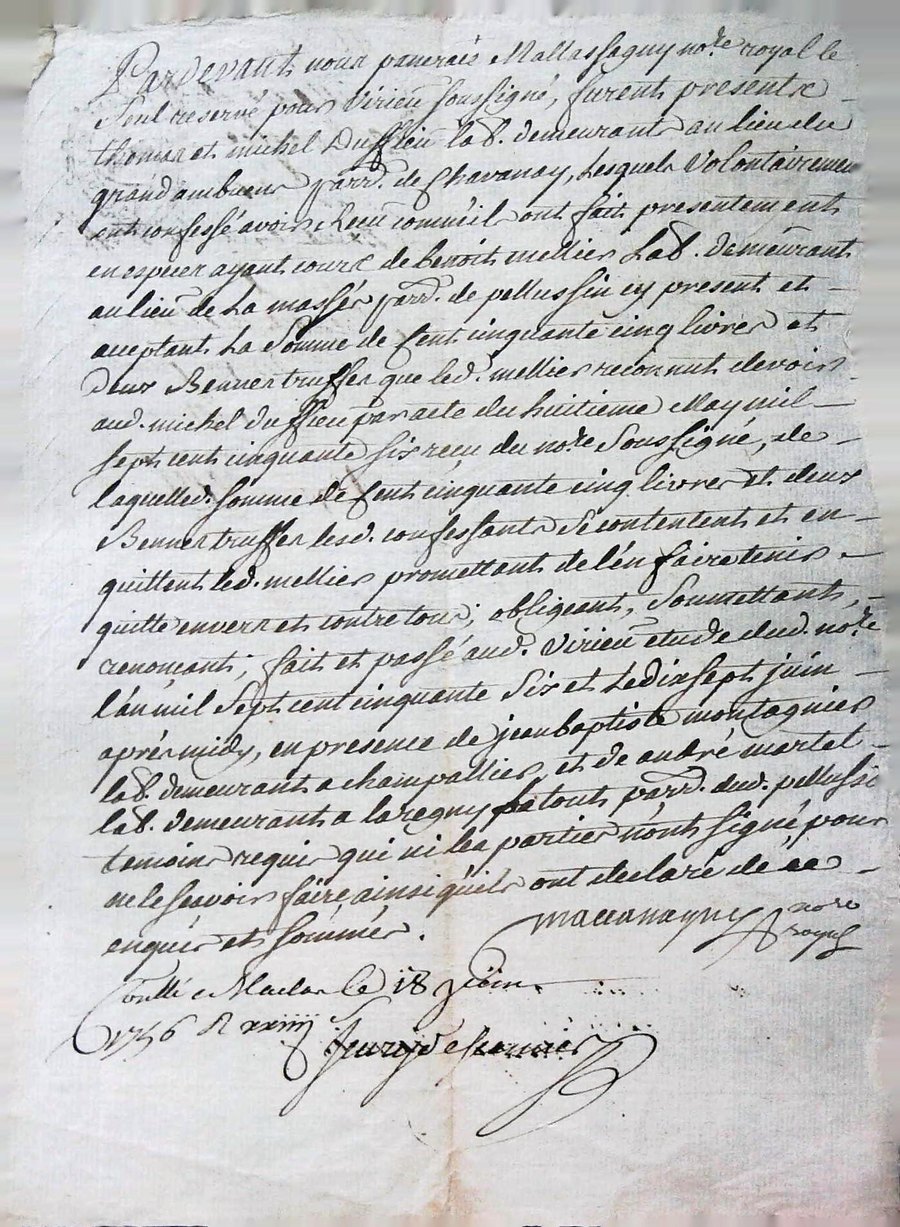 Pardevant nous pancrais Mallassagny no.re royal le
seul reservé pour Virieu soussigné, furent presents
thomas et michel Duffieu lab. demeurants au lieu du
grand ambuent parr. de Chavanay, Lesquels Volontairement
ont confessé avoir Receu comme il ont fait presentement
en especes ayant cours de benoit mellier Lab. demeurant
au lieu de La massés parr. de pellussin cy present et
acceptant La somme de Cent cinquante cinq livres et
deux Bennes truffes que led. mellier reconnut devoir
aud. michel duffieu par acte du huitieme May mil
sept cent cinquante six reçu du no.re soussigné, de
laquelled. somme de Cent cinquante cinq livres et deux
Bennes truffes lesd. confessants se contentent et en
quittent led. mellier promettants de l'en faire tenir
quitte envers et contre tous; obligeants, soumettants,
renonçants; fait et passé aud. Virieu etude dud. no.re
l'an mil sept cent cinquante six et Le dix sept juin
aprés midy, en presence de jean baptiste montagnier
lab. demeurant a champallier, et de andré martel
lab. demeurant a laregny parr. dud. pellussin
temoins requis qui ni les parties n'ont signé pour
ne le sçavoir faire ainsi qu'ils ont declaré de ce
enquis et sommés.
no.re
royal
Conllé a Maclas le 18 juin
1756 R xxiiij s